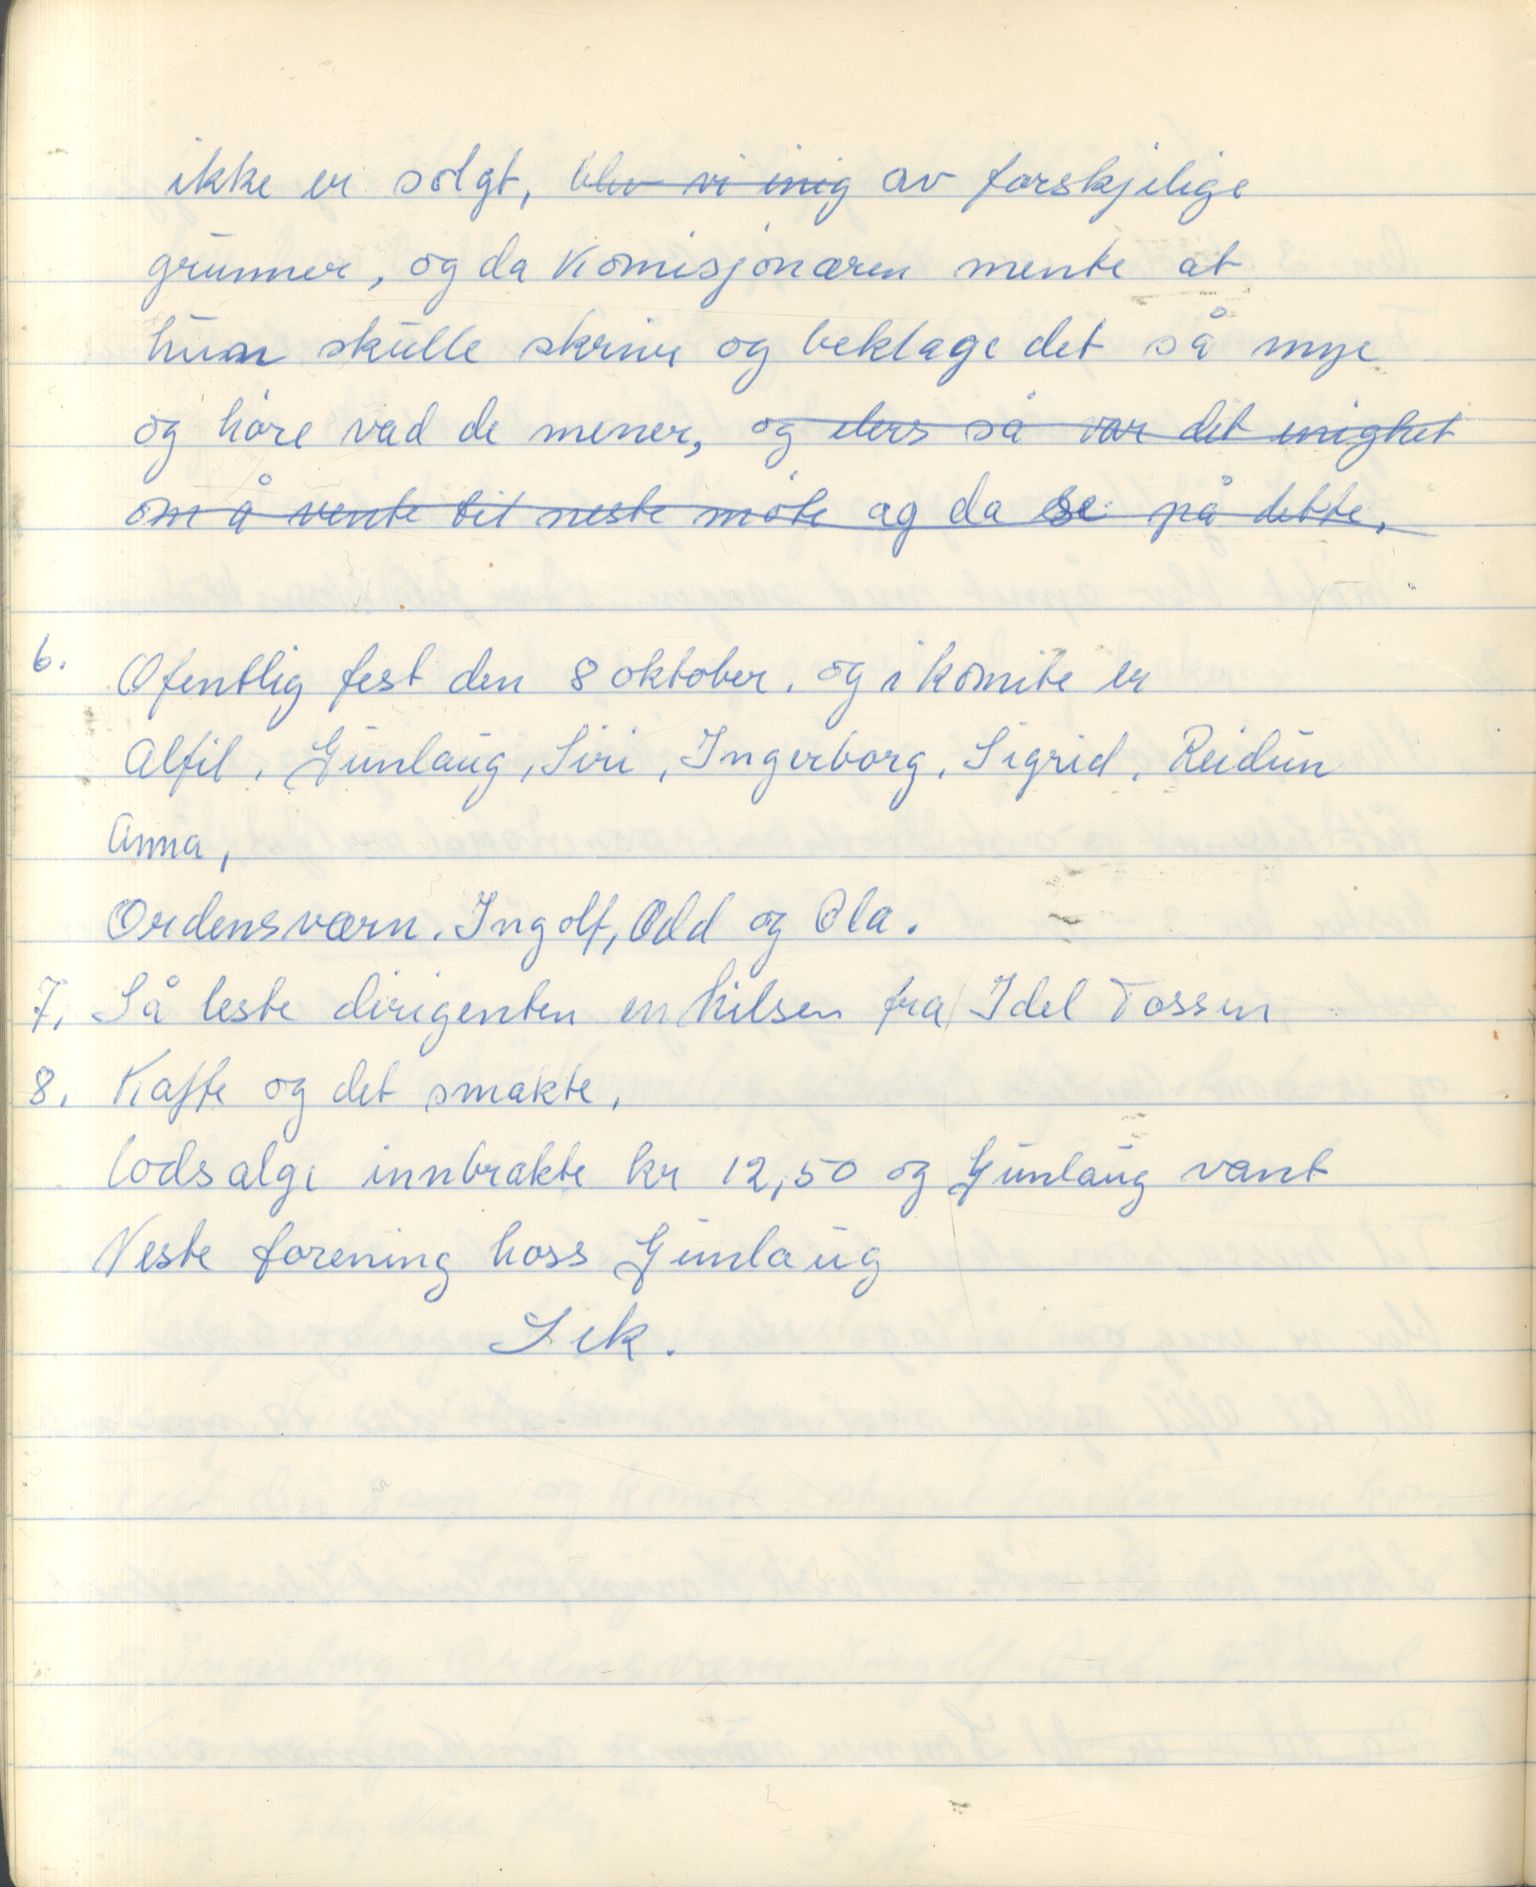 ikke er solgt, blev vi inig av forskjelige
grunner, og da Komisjonæren mente at
hun skulle skrive og beklage det så mye
og høre vad de mener, og elers så var det enighet
om å vente til neste møte og da se på dette.
6. Ofentlig fest den 8 oktober. og i komite er
Alfil, Gunlaug, Siri, Ingerborg, Sigrid, Reidun
Anna,
Ordensværn. Ingolf, Odd og Ola.
7. Så leste dirigenten en hilsen fra Idel Tossen
8. Kaffe og det smakte.
Lodsalge innbrakte kr 12,50 og Gunlaug vant
Neste forening hoss Gunlaug
Sek.